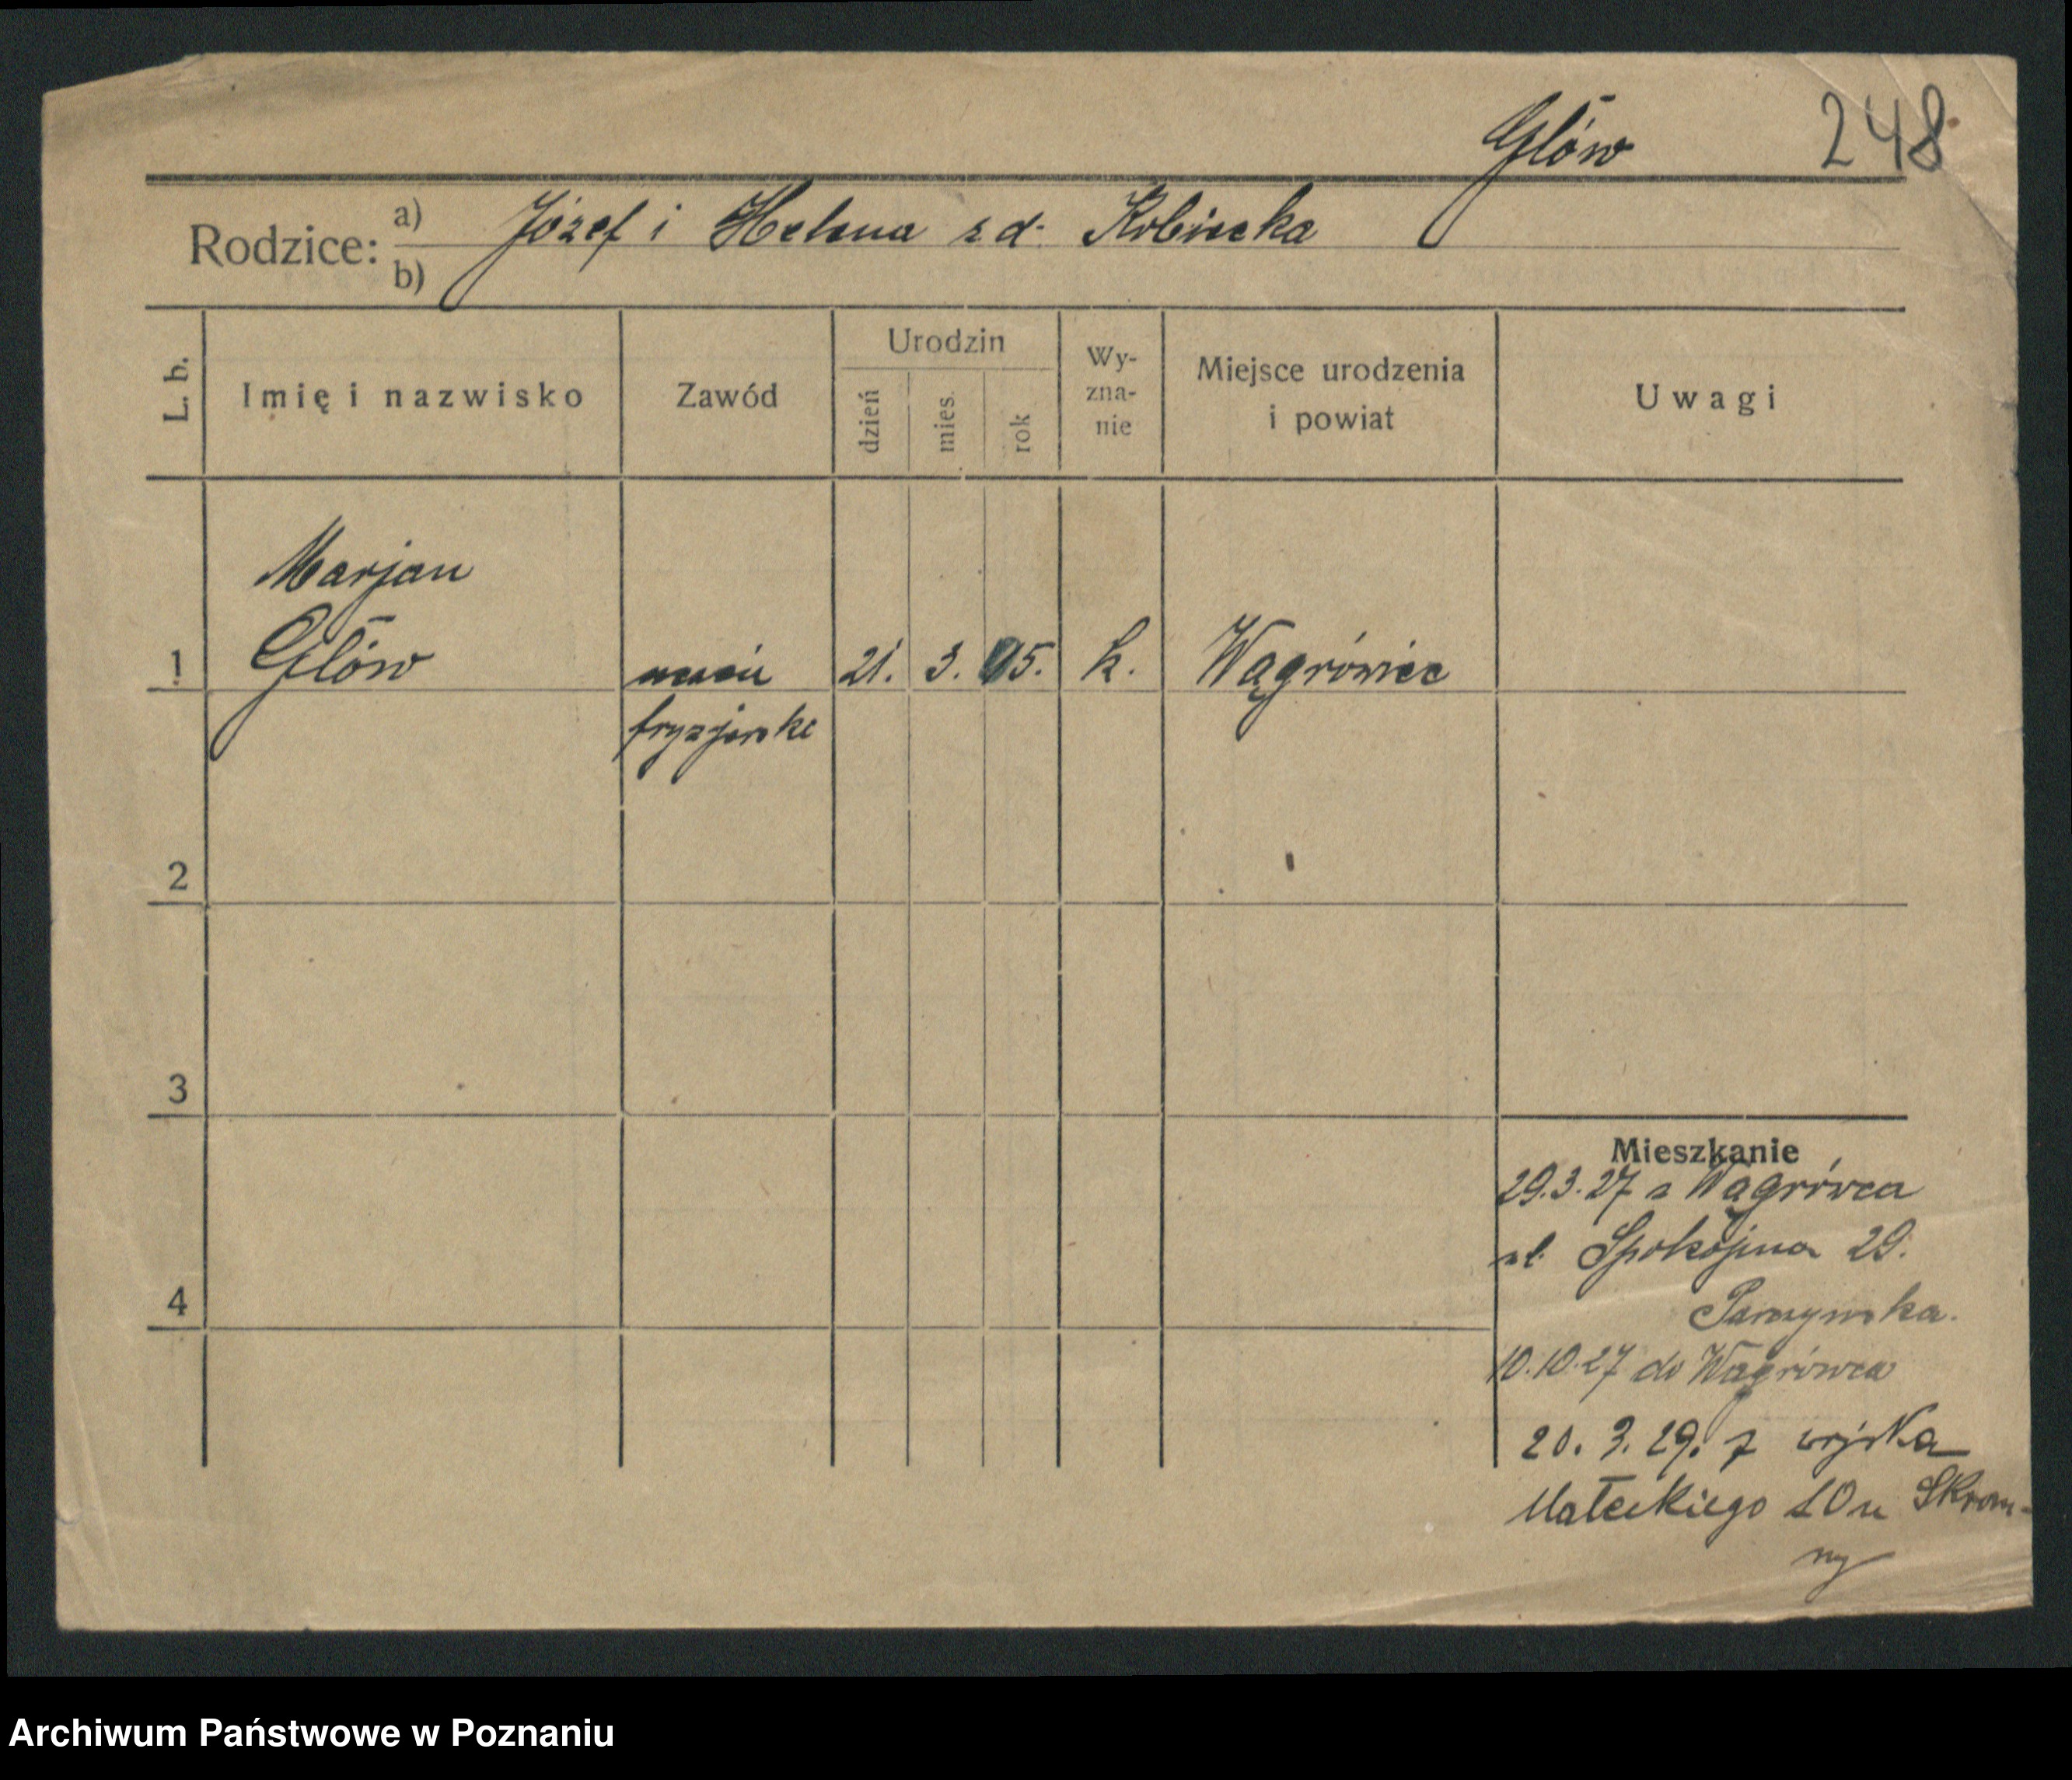 Głów 248
Rodzice: a) Józef i Helena zd. Kobiecka
b)
L. b.
Imię i nazwisko
Zawód
Urodzin
dzień
mies.
rok
Wy-
zna-
nie
Miejsce urodzenia
i powiat
Uwagi
Marjan
1 Głów uczeń 21. 3. 05. k. Wągrówiec
2
3
4
Mieszkanie
29.3.27 z Wągrówca
ul. Spokojna 29.
10.10.27 do Wągrówca
20. 3. 29. z wojska
Małeckiego 10 u Skrom-
ny
Archiwum Państwowe w Poznaniu